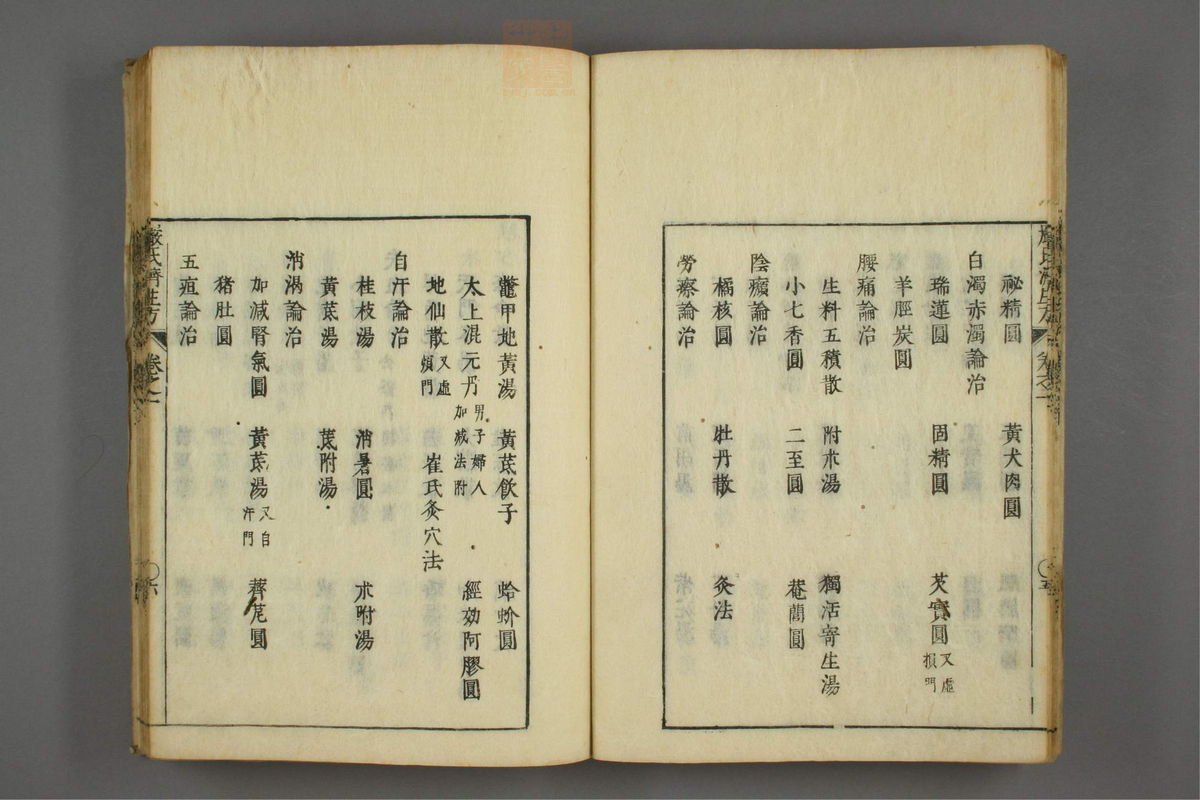 祕精圓　黃犬肉圓
白濁赤濁論治
瑞蓮圓　固精圓　芡實圓又虛損門
羊脛炭圓
腰痛論治
生料五積散　附朮湯　獨活寄生湯
小七香圓　二至圓　菴䕡圓
陰癩論治
橘核圓　牡丹散　灸法
勞瘵論治
嚴氏濟生方　卷之一　五
鼈甲地黃湯　黃茋飲子　蛤蚧圓
太上混元丹男子婦人加減法附　經効阿膠圓
地仙散又虛煩門　崔氏灸穴法
自汗論治
桂枝湯　消暑圓　朮附湯
黃茋湯　茋附湯
消渴論治
加減腎氣圓　黃茋湯又自汗門　薺苨圓
猪肚圓
五疸論治
嚴氏濟生方　卷之一　六